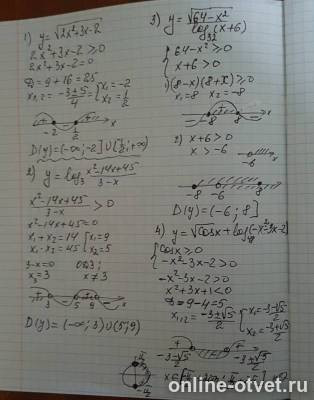 1) y=√(2x²+3x-2)
2x²+3x-2≥0
2x²+3x-2=0
D=9+16=25
x₁,₂=(-3±5)/4={x₁=-2
x₂=1/2
+ - +
-2 1/2 x
D(y)=(-∞;-2]∪[1/2;+∞)
2) y=log₃ (x²-14x+45)/(3-x)
(x²-14x+45)/(3-x)>0
x²-14x+45=0
x₁+x₂=14 {x₁=9
x₁·x₂=45 {x₂=5
3-x=0
x₃=3 x≠3
3 5 9 x
D(y)=(-∞;3)∪(5;9)
3) y=√(64-x²)
log₃₂(x+6)
{64-x²≥0
x+6>0
1) (8-x)(8+x)≥0
x₁=8 x₂=-8
-8 8 x
2) x+6>0
x>-6
-6 x
-8 -6 8
D(y)=(-6;8]
4) y=√cosx+log(-x²-3x-2)
{cosx≥0
-x²-3x-2>0
-x²-3x-2>0
x²+3x+1<0
D=9-4=5
x₁,₂=(-3±√5)/2 {x₁=(-3-√5)/2
x₂=(-3+√5)/2
(-3-√5)/2 (-3+√5)/2
online-otvet.ru